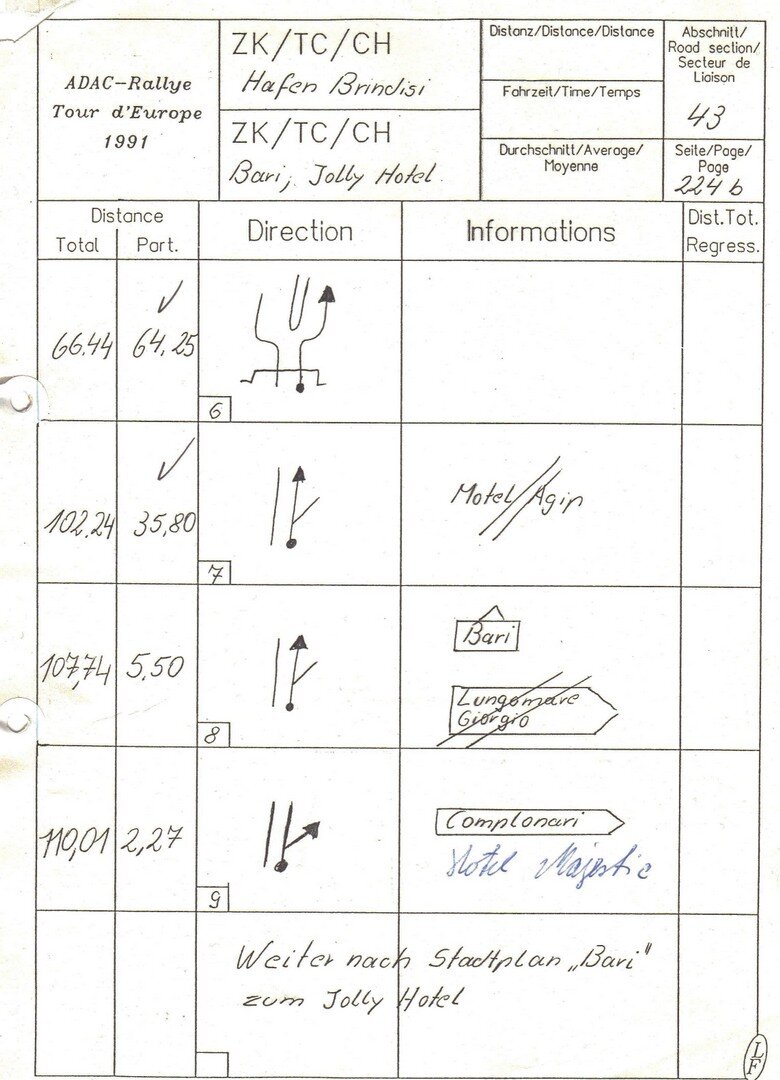 ADAC-Rallye
Tour d'Europe
1991
ZK/TC/CH
Hafen Brindisi
ZK/TC/CH
Bari, Jolly Hotel
Distanz/Distance/Distance
Fahrzeit/Time/Temps
Durchschnitt/Average/
Moyenne
Abschnitt/
Road section/
Secteur de
Liaison
43
Seite/Page/
Page
224 b
Distance
Total Part.
Direction
Informations
Dist.Tot.
Regress.
66.44 64,25
6
102.24 35,80
7
Motel Agip
107,74 5,50
8
Bari
Lungomare
Giorgio
110,01 2,27
9
Complonari
Hotel Majestic
Weiter nach Stadtplan „Bari"
zum Jolly Hotel
L
F